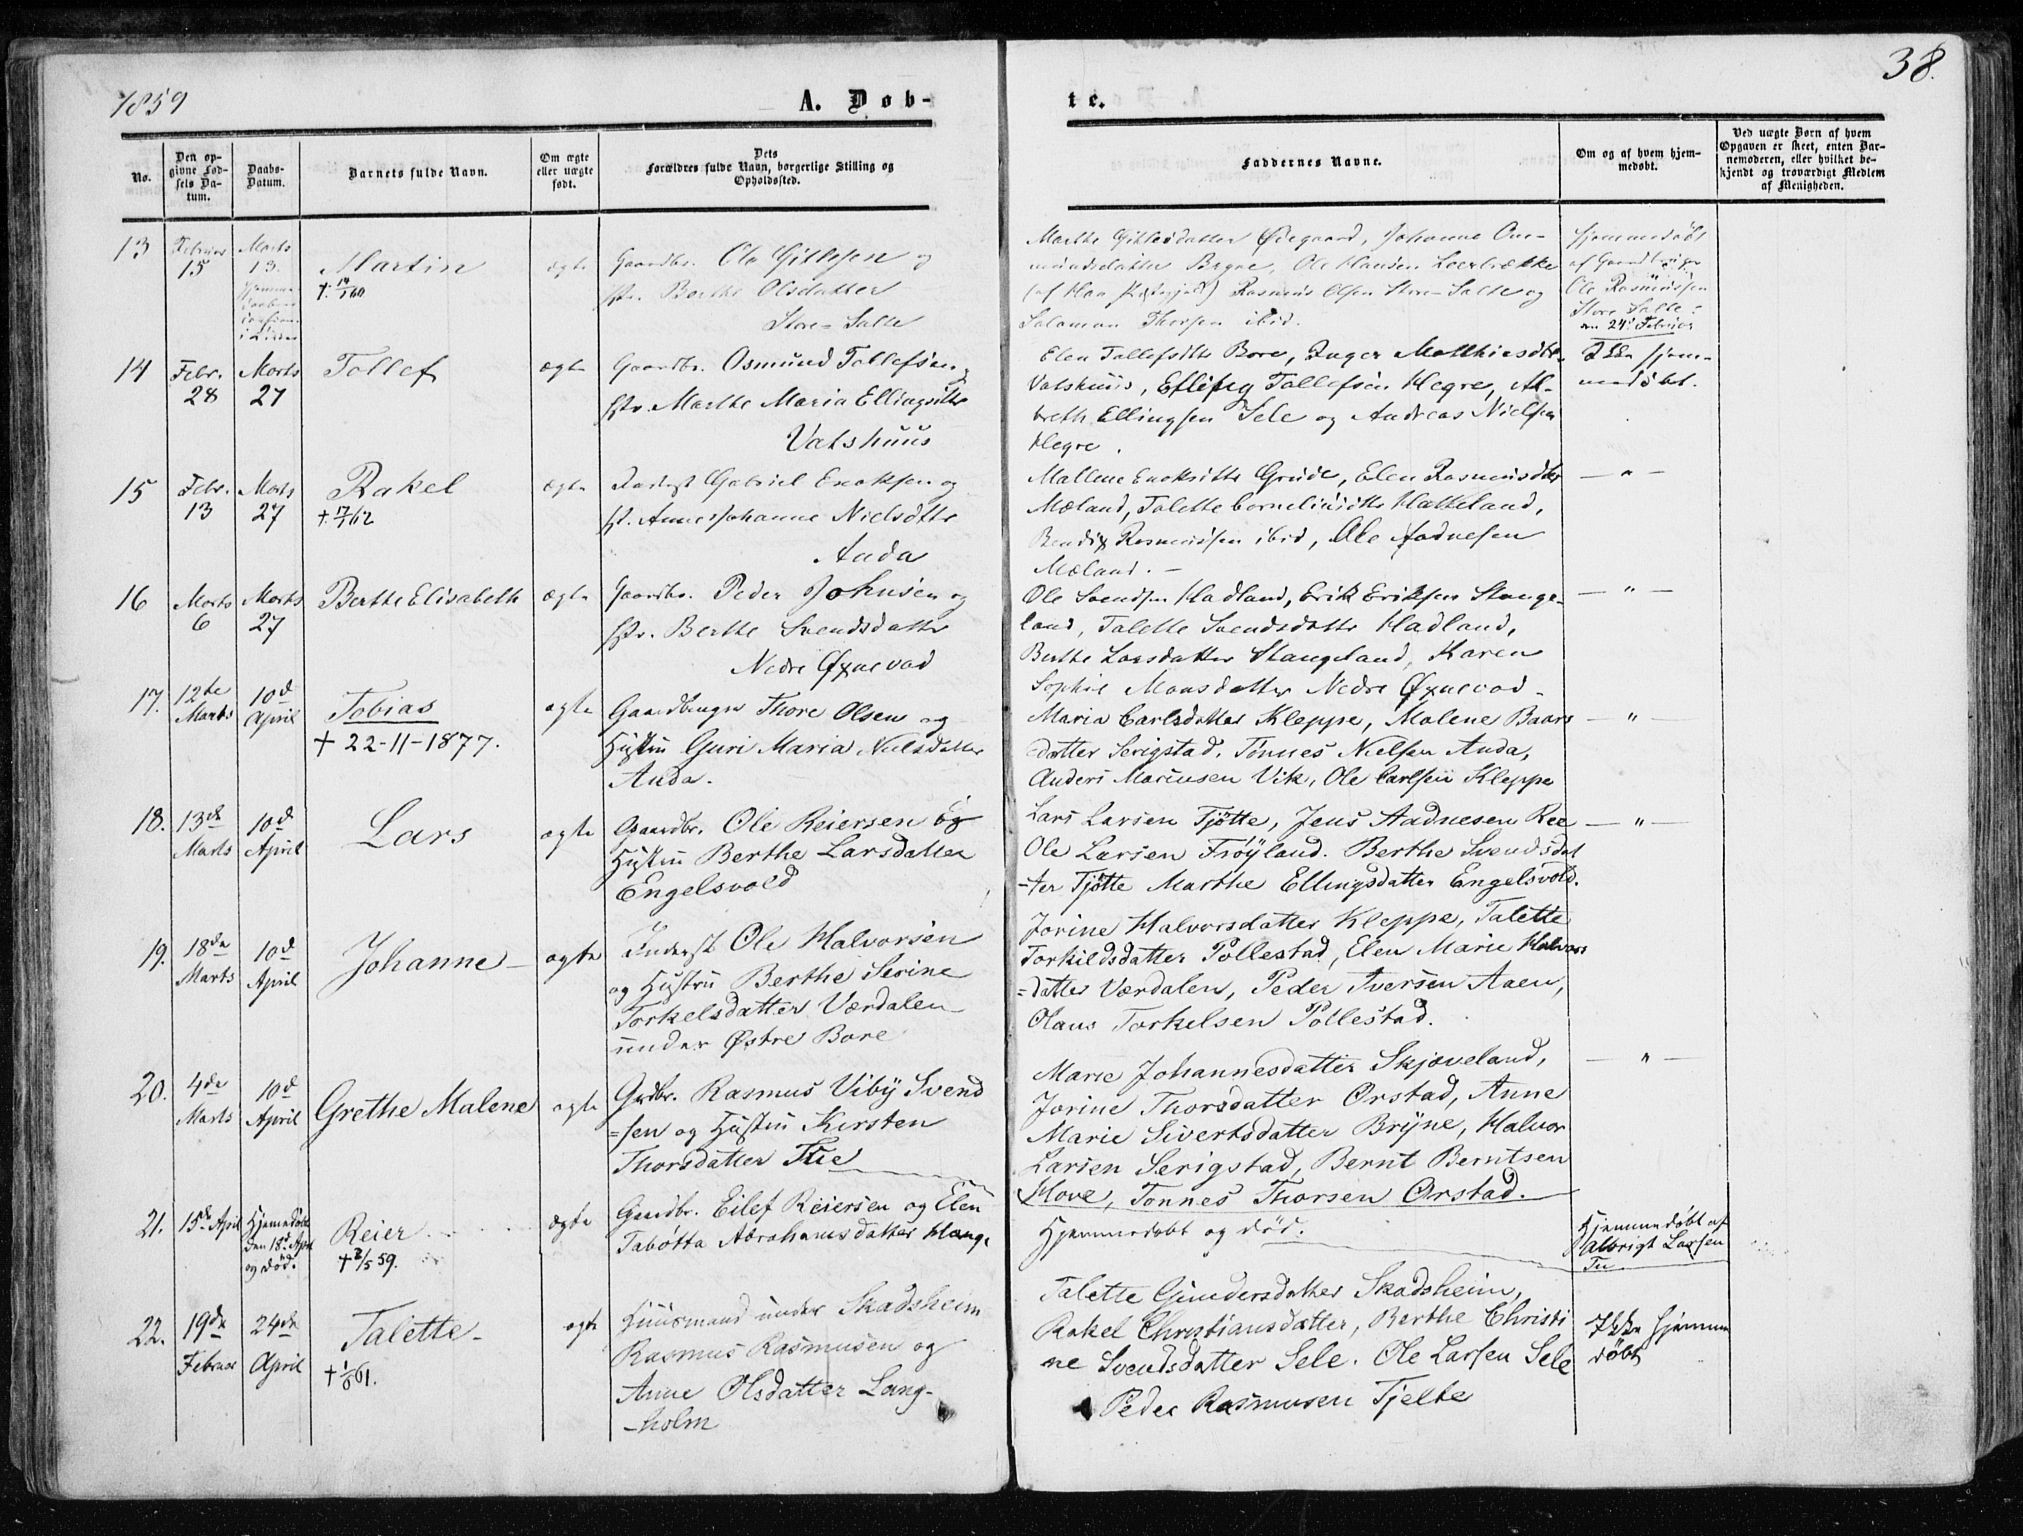 1859
A. Døb-
te.
38.
No.
Den opgivne Fødsels Datum.
Daabs-Datum.
Barnets fulde Navn.
Om ægte eller uægte født.
Dets Forældres fulde Navn, borgerlige Stilling og Opholdssted.
Faddernes Navne.
Om og af hvem hjemmedøbt.
Ved uægte Børn af hvem Opgaven er skeet, enten Barnemoderen, eller hvilket bekjendt og troværdigt Medlem af Menigheden.
13
Februar 15
Marts 13.
Martin
ægte
Gaardbr. Ole Gitlesen og
Hstr. Berthe Olsdatter
Store-Salte
Marthe Gitlesdatter Ødegaard, Johanne
Bryne, Ole Hansen
Rasmus Olsen Store-Salte og
Salomon Thorsen ibid.
Hjemmedøbt
af Gaardbruger
Ole Rasmussen
Store Salte
den 24 Februar
14
Febr. 28
Marts 27
Tollef
ægte
Gaardbr. Osmund Tollefsen og
Hstr. Marthe Maria Ellingsdttr
Vatshuus
Elen Tollefsdttr Bore, Inger Matthiasdtr.
Vatshuus, Elling Tollefsen Hegre, Al-
breth Ellingsen Sele og Andreas Nielsen
Hegre.
Ikke hjem-
medøbt.
15
Febr. 13
Marts 27
Rakel
ægte
Gabriel Enoksen og
H. Anne Johanne Nielsdttr
Anda
Mallene Enoksdttr Grude, Elen Rasmusdttr
Mæland, Talette Cornelius dttr Hatteland,
Bendix Rasmussen ibid, Ole Aadnesen
Mæland. -
— " —
16
Marts 6
Marts 27
Berthe Elisabeth
ægte
Gaardbr. Peder Johnsen og
Hstr. Berthe Svendsdattr
Nedre Øxnevad
Ole Svendsen Hadland, Erik Eriksen Stange-
land, Talette Svendsdattr Hadland,
Berthe Larsdatter Stangeland, Karen
Sophie Monsdatter Nedre Øxnevad -
— " —
17.
12te Marts
10d April
Tobias
† 22-11-1877.
ægte
Gaardbruger Thore Olsen og
Hustru Guri Maria Nielsdatter
Anda.
Maria Carlsdatter Kleppe, Malene Baars
datter Serigstad. Tønnes Nielsen Anda,
Anders Mariusen Vik, Ole Carlsen Kleppe
— " —
18.
13de Marts
10d April
Lars
ægte
Gaardbr. Ole Reiersen og
Hustru Berthe Larsdatter
Engelsvold
Lars Larsen Tjøtte, Jens Aadnesen Ree
Ole Larsen Frøyland. Berthe Svendsdat
-ter Tjøtte Marthe Ellingsdatter Engelsvold.
— " —
19.
18de Marts
10d April
Johanne —
ægte
Inderst Ole Halvorsen
og Hustru Berthe Serine
Torkelsdatter Værdalen
under Østre Bore
Jorine Halvorsdatter Kleppe, Talette
Torkildsdatter Pollestad, Elen Marie Halvors
=datter Værdalen, Peder Iversen Aaen,
Olaus Torkelsen Pollestad.
20.
4de Marts
10d April
Grethe Malene
ægte
Grdbr. Rasmus Viby Svend
=sen og Hustru Kirsten
Thorsdatter Tue
Marie Johannesdatter Skjæveland,
Jorine Thorsdatter Orstad, Anne
Marie Sivertsdatter Bryne, Halvor
Larsen Serigstad, Bernt Berntsen
Hove, Tønnes Thorsen Orstad.
— " —
21.
15de April
Hjemmedøbt
den 18de April
og død.
Reier
† 2/5 59.
ægte
Gaardbr. Eilef Reiersen og Elen
Tabótta Abrahamsdatter
Hjemmedøbt og død.
Hjemmedøbt af
Albrigt Larsen
Tu
22.
19de Februar
24de April
Talette -
ægte
Huusmand under Skadsheim
Rasmus Rasmusen og
Anne Olsdatter Lang-
-holm
Talette Gundersdatter Skadsheim,
Rakel Christiansdatter, Berthe Christi
ne Svendsdatter Sele. Ole Larsen Sele
Peder Rasmusen Tjelte
Ikke Hjemme
døbt